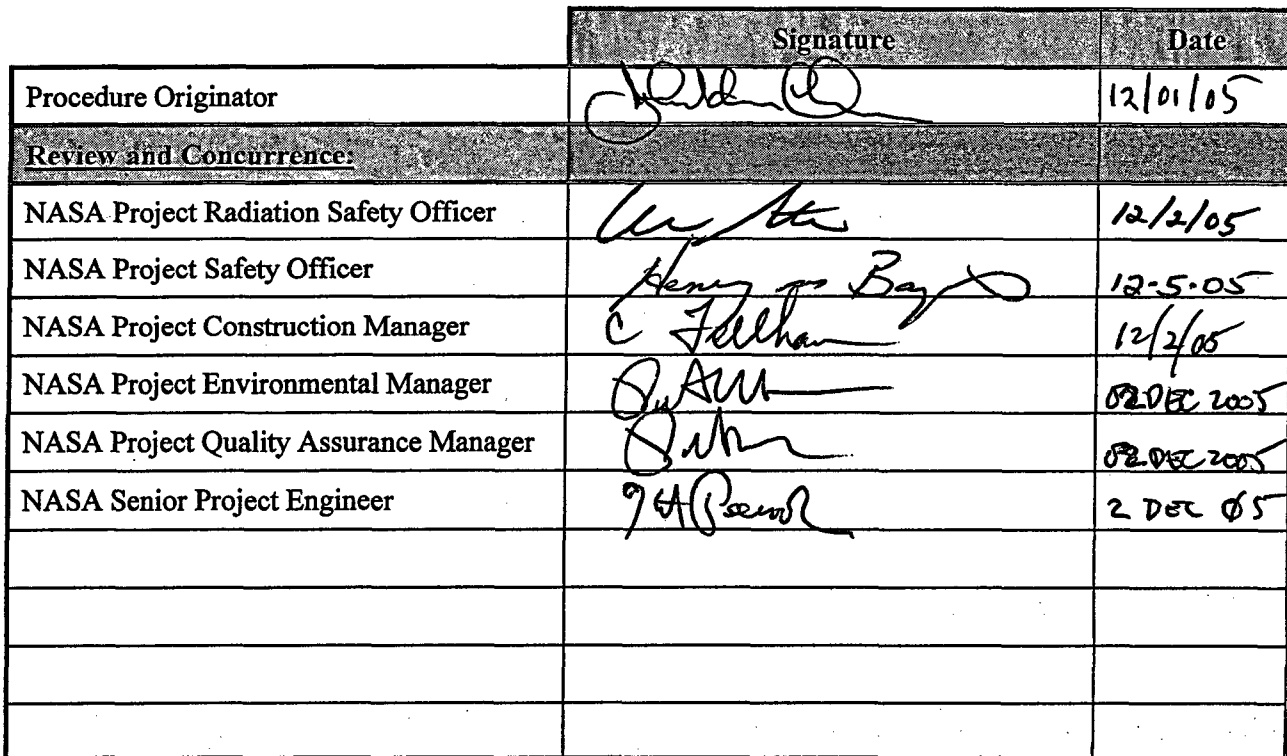 Signature Date
Procedure Originator 12/01/05
Review and Concurrence:
NASA Project Radiation Safety Officer 12/2/05
NASA Project Safety Officer Henry 12-5-05
NASA Project Construction Manager C 12/2/05
NASA Project Environmental Manager 02 DEC 2005
NASA Project Quality Assurance Manager 02 DEC 2005
NASA Senior Project Engineer 2 DEC 05